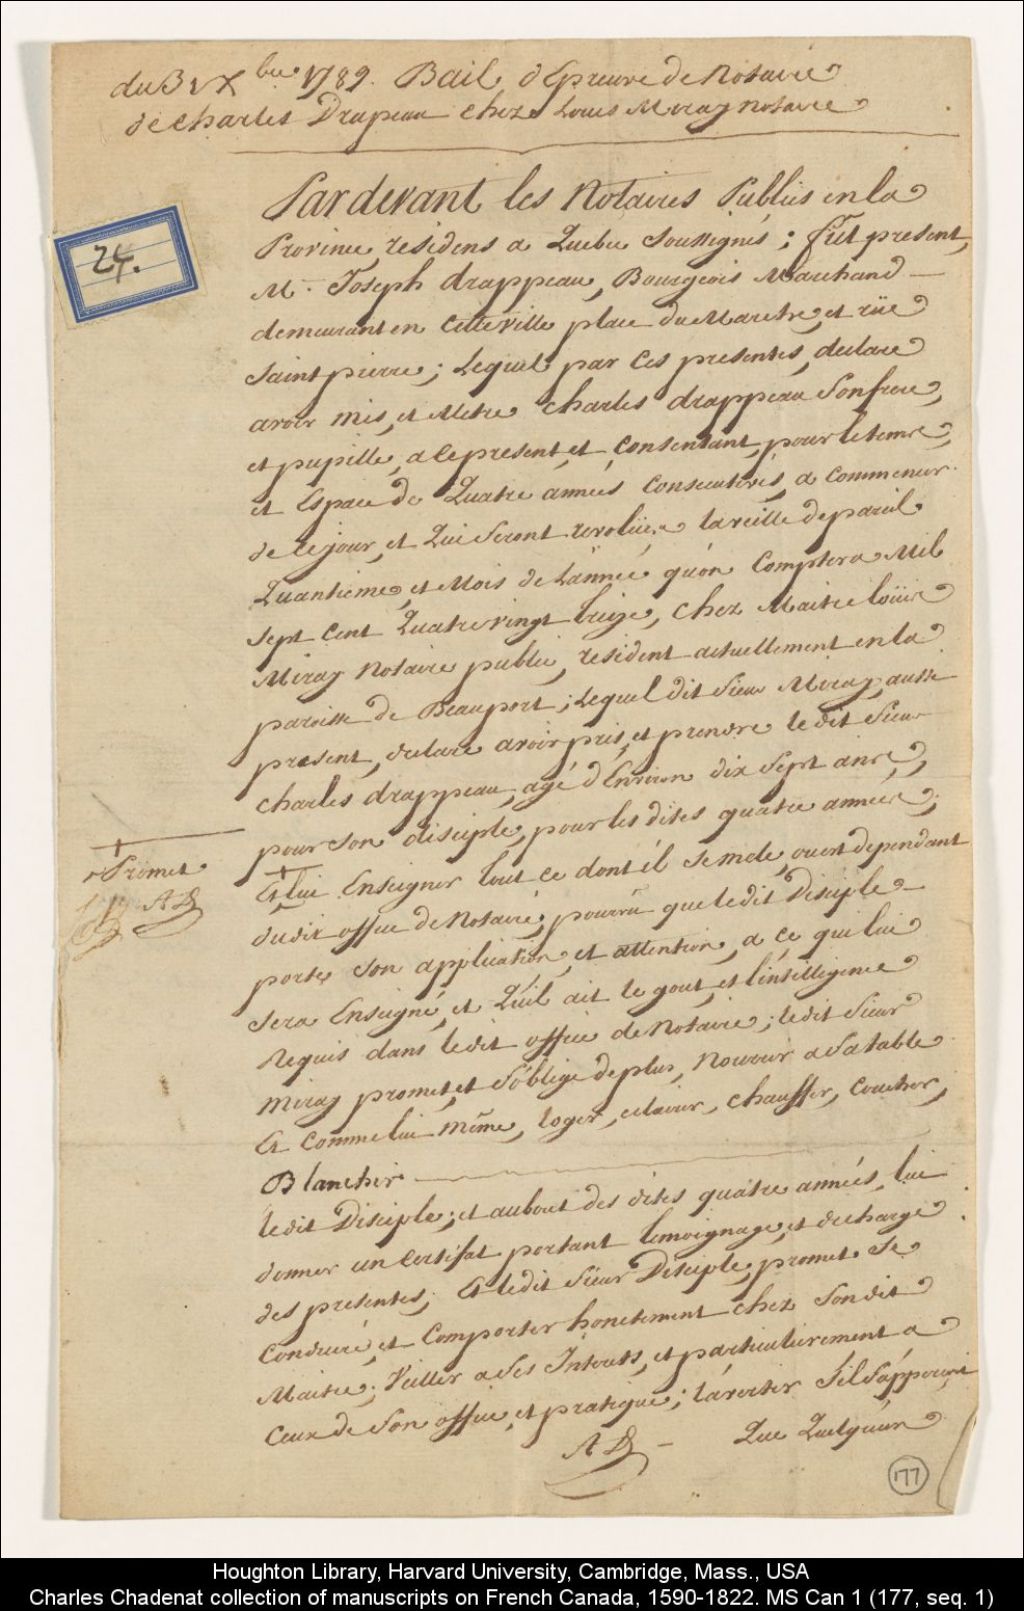 du 31 Xbre 1789. Bail d'Epreuve de Notaire
de Charles Drapeau chez Louis Miray notaire
24.
Pardevant les Notaires Publics en la
Province, residens a Quebec soussignés; fut present,
Mr. Joseph drappeau, Bourgeois Marchand
demeurant en cette ville place du Marché, et rüe
Saint pierre; Lequel par ces presentes, declare
avoir mis, et Metre Charles drappeau Son frere,
et pupille, a ce present, et consentant, pour le tems,
et Espace de Quatre années consecutives, a commencer
de ce jour, et Qui Seront revolües la veille de pareil
Quantieme, et Mois de L'année qu'on Comptera Mil
Sept Cent Quatrevingt treize, chez Maitre loüis
Miray Notaire public, resident actuellement en la
paroisse de Beauport; Lequel dit Sieur Miray, aussi
present, declare avoir pris, et prendre le dit Sieur
Charles drappeau, agé d'Environ dix Sept ans,
pour Son disciple, pour les dites quatre années;
+
promet
AD
Et lui Enseigner tout ce dont il se mele, ou en dependant
dudit office de Notaire; pourvû que ledit Disciple
porte son application, et attention, a ce qui lui
sera Enseigné, et Qu'il ait le gout, et l'intelligence
Requis dans ledit office de Notaire; ledit Sieur
Miray promet, et S'oblige de plus, Nourrir a Sa table
Et Comme lui même, loger, eclairer, chauffer, coucher,
Blanchir
ledit Disciple; et au bout des dites quatre années, lui
donner un Certifat portant temoignage, et decharge
des presentes; Et ledit Sieur Disciple, promet se
Conduire, et Comporter honetement chez Son dit
Maitre; Veiller a Ses Interets, et particulierement a
Ceux de Son office, et pratique; l'avertir S'il S'apperçoit
Que Quelqu'un
AD
177
Houghton Library, Harvard University, Cambridge, Mass., USA
Charles Chadenat collection of manuscripts on French Canada, 1590-1822. MS Can 1 (177, seq. 1)